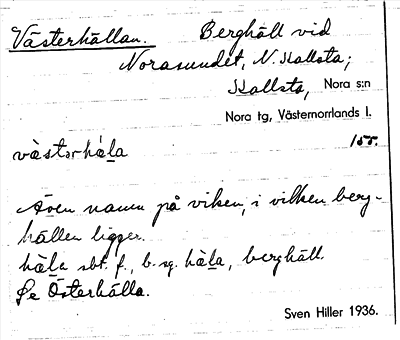 Västerhällan. Berghäll vid
Norasundet, N. Hallsta;
Hallsta, Nora s:n
Nora tg, Västernorrlands l.
väst
Även namn på viken, i vilken berg-
hällen ligger.
sbt. f., b. sg. berghäll.
Se Österhälla.
Sven Hiller 1936.